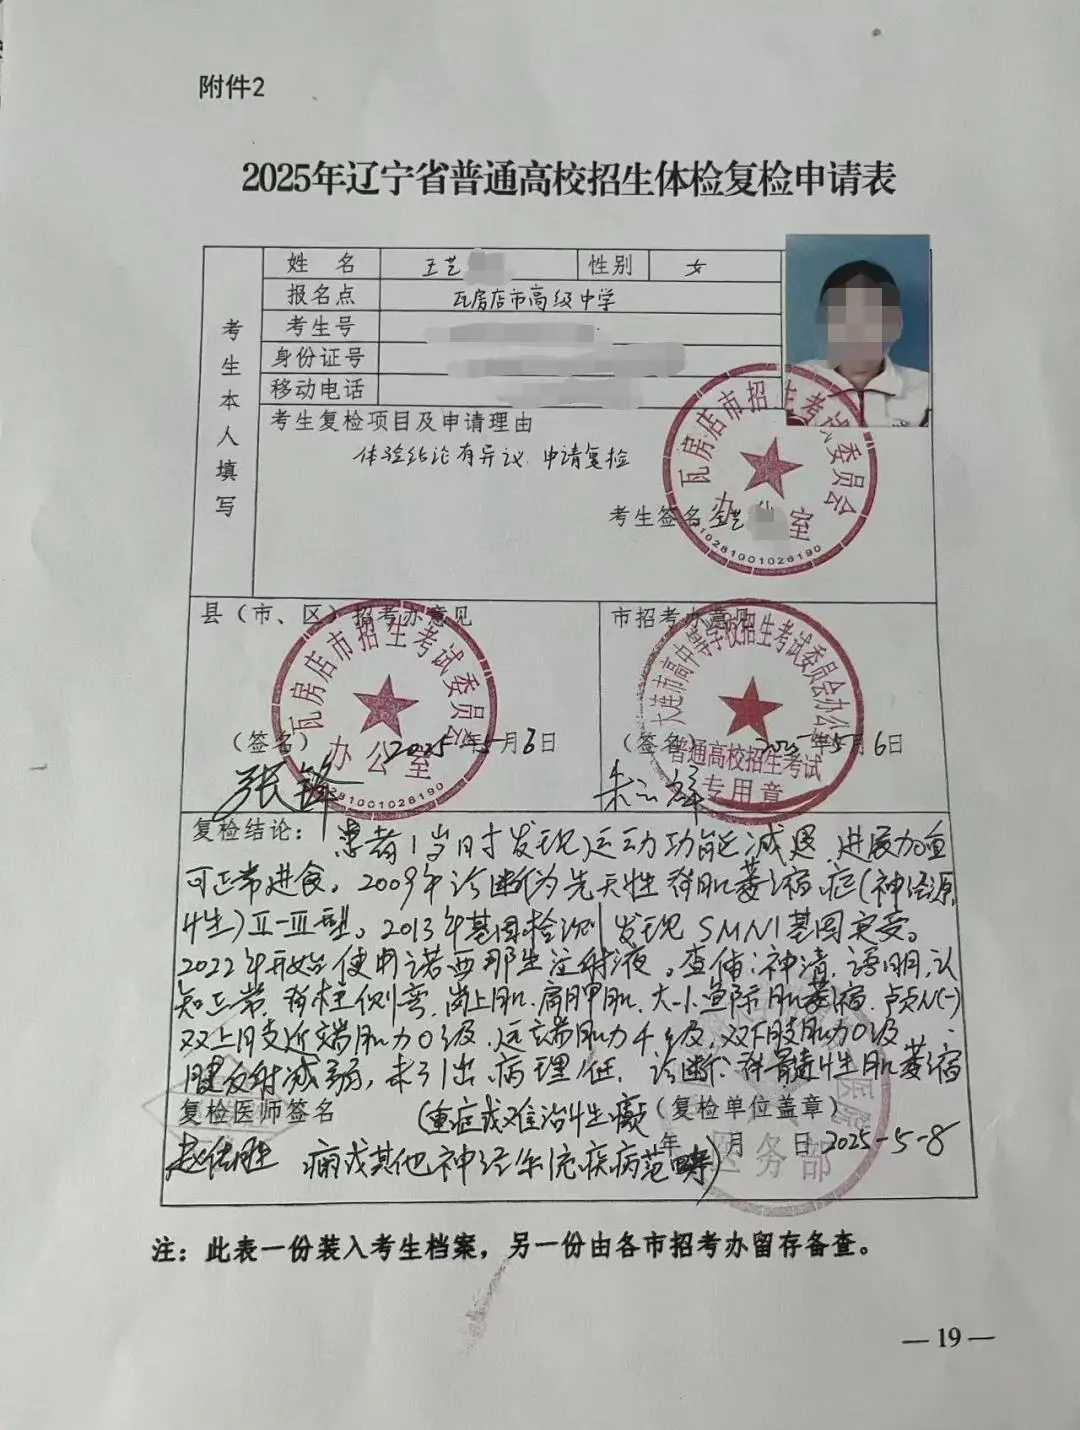 附件2
2025年辽宁省普通高校招生体检复检申请表
考生本人填写
姓名 王艺 性别 女
报名点 瓦房店市高级中学
考生号
身份证号
移动电话
考生复检项目及申请理由
体验结论有异议 申请复检
考生签名 王艺
瓦房店市招生考试委员会
办公室
210281001026190
县（市、区）招考办意见
市招考办意见
瓦房店市招生考试委员会
办公室
大连市高中等学校招生考试委员会办公室
普通高校招生考试
专用章
（签名） 2025年5月6日
（签名） 2025年5月6日
张锋
复检结论：患者1岁时发现运动功能减退，进展加重
可正常进食。2009年诊断为先天性脊肌萎缩症(神经源
性)Ⅱ-Ⅲ型。2013年基因检测发现SMN1基因突变。
2022年开始使用诺西那生注射液。查体：神清，语明，认
知正常，脊柱侧弯，岗上肌、肩胛肌、大小鱼际肌萎缩，颅N(-)
双上肢近端肌力0级，远端肌力4级，双下肢肌力0级，
腱反射减弱，未引出病理征。诊断：脊髓性肌萎缩
复检医师签名 (重症或难治性癫 （复检单位盖章）
痫或其他神经系统疾病范畴) 年 月 日 2025-5-8
医院
医务部
注：此表一份装入考生档案，另一份由各市招考办留存备查。
— 19 —